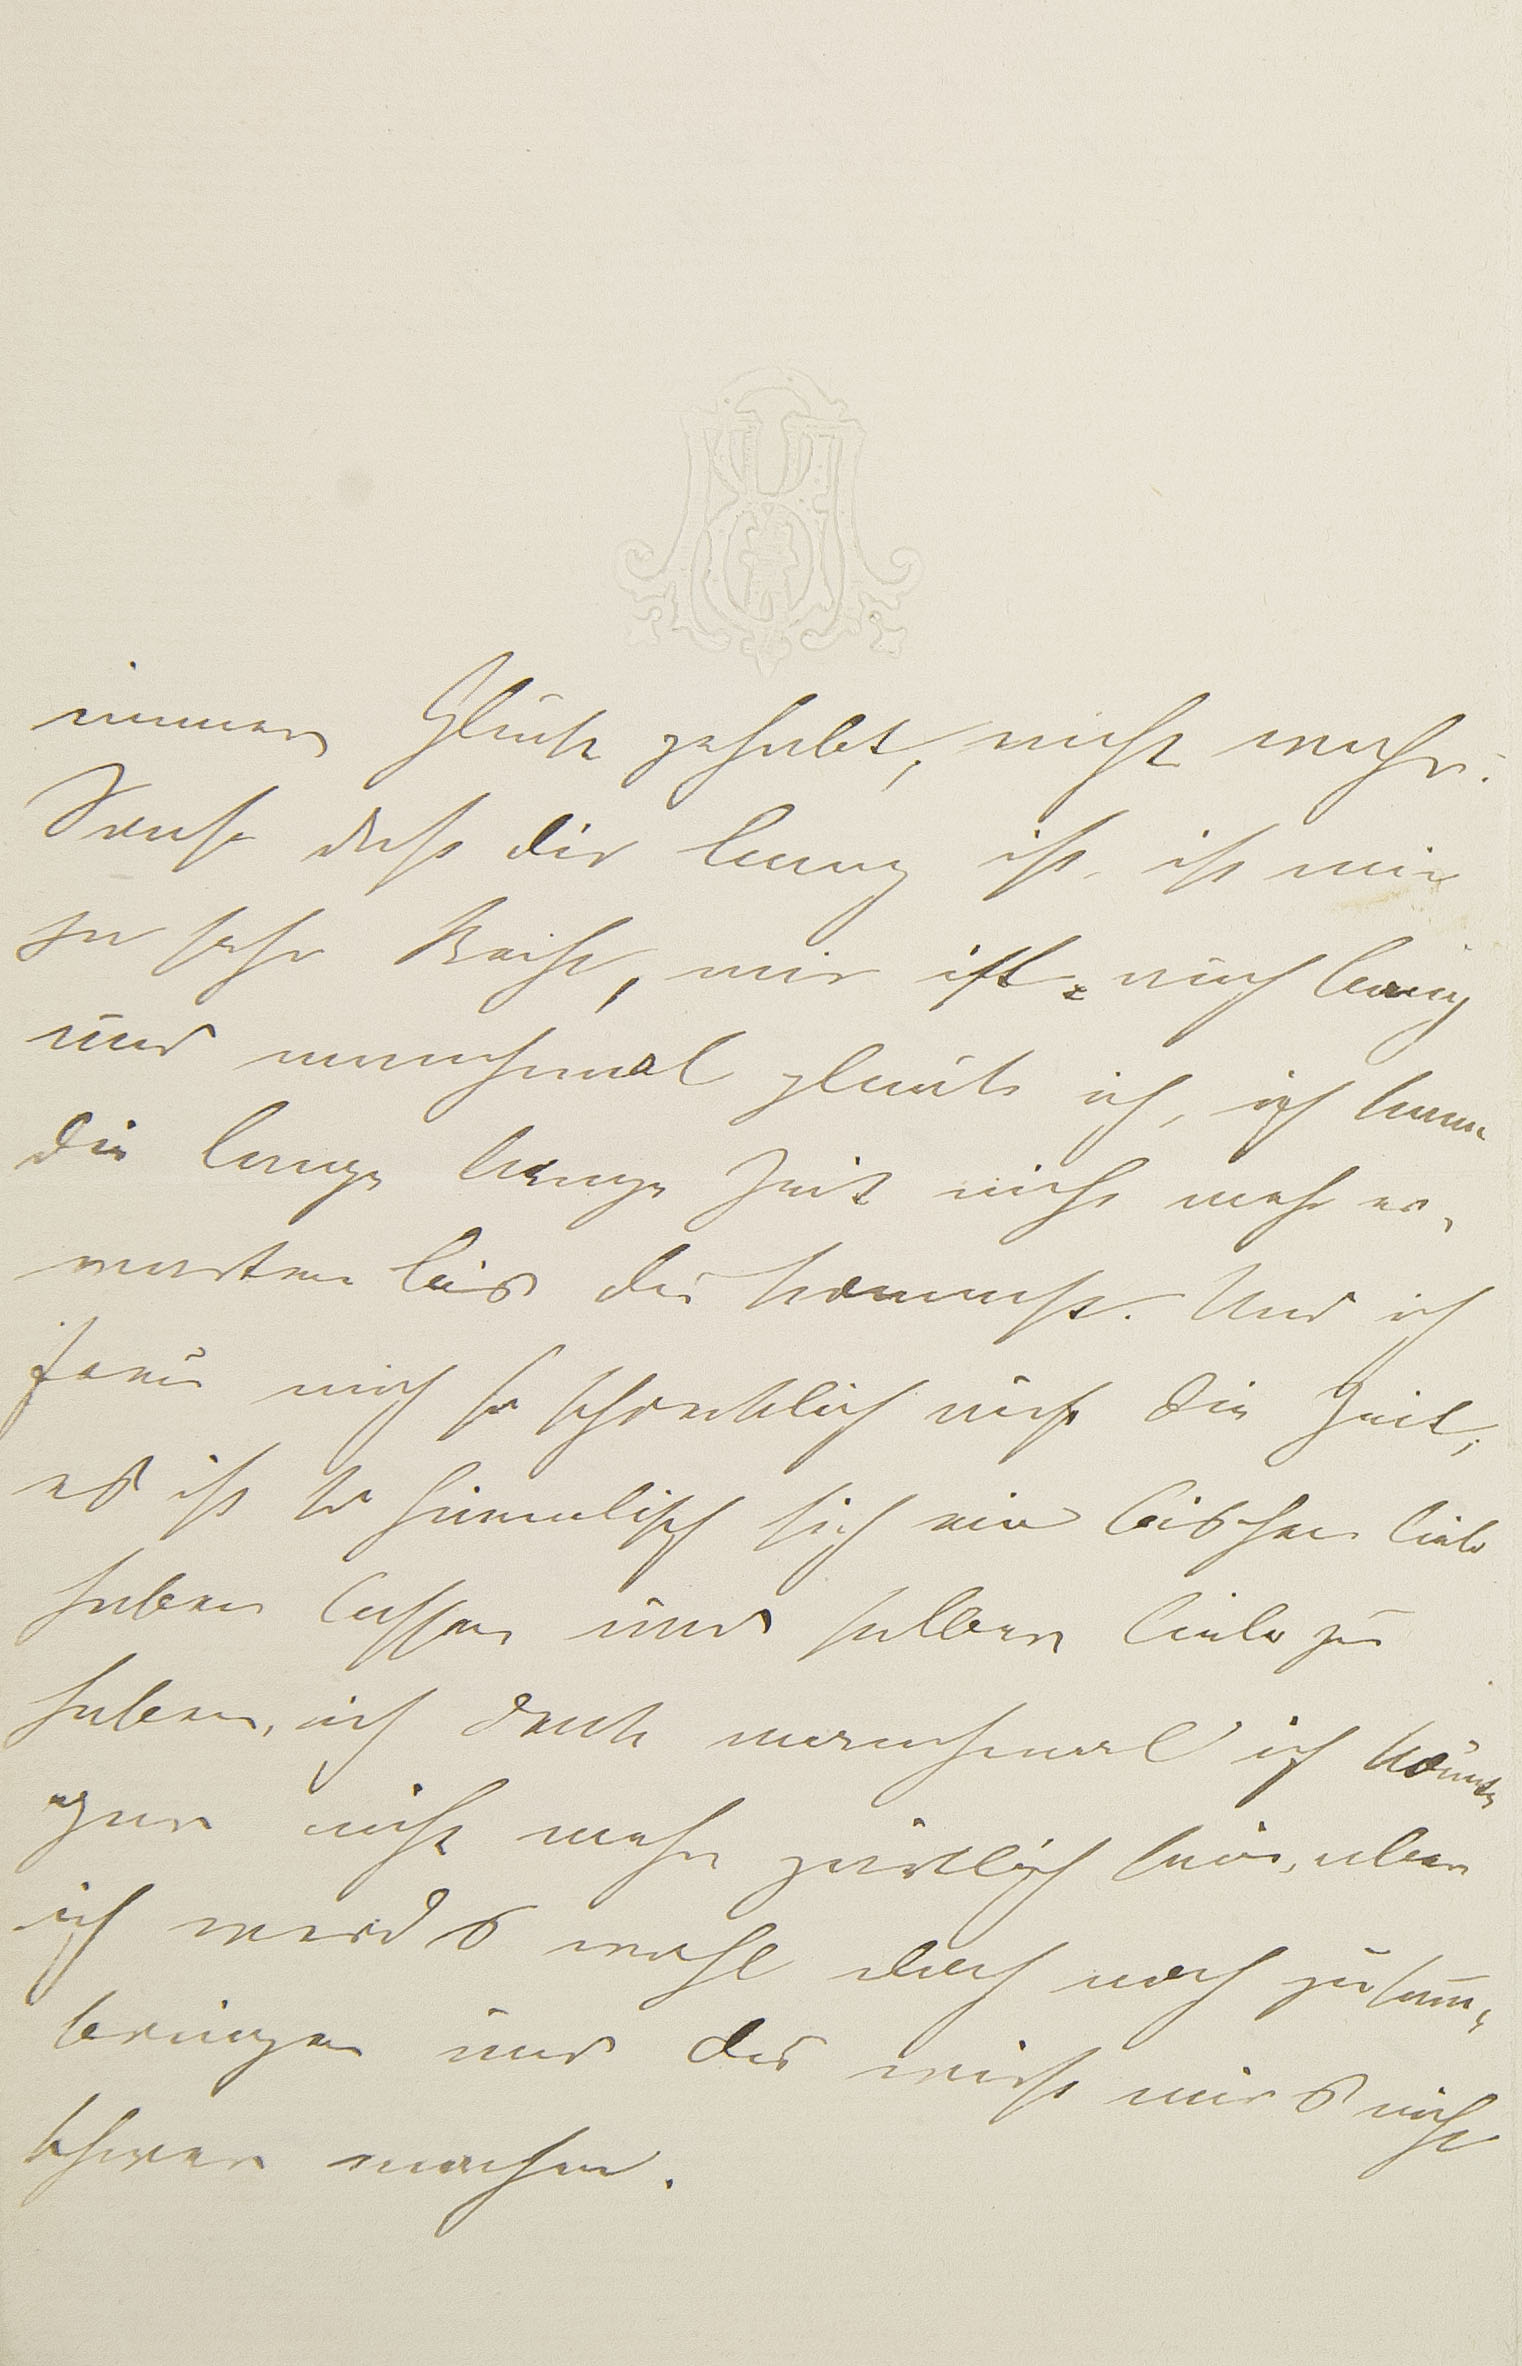 immer Glück gehabt, nicht wahr.
Denk dass dir bang ist, ist mir
so sehr Recht, mir ist auch bang
und manchmal glaub ich, ich kann
die lange bange Zeit nicht mehr er-
warten bis du kommst. Und ich
freu mich so schrecklich auf die Zeit,
es ist so himmlisch sich ein bischen lieb
haben lassen und selber lieb zu
haben, ich denk manchmal ich könnte
gar nicht mehr zärtlich sein, aber
ich werds wohl doch noch zusam-
bringen und du wirst mirs nicht
schwer machen.